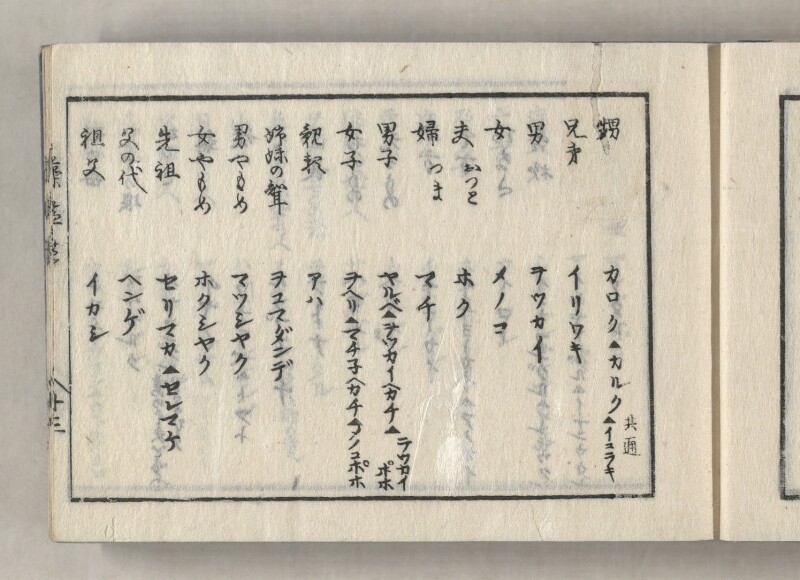 甥 カロク▲カルク▲イユラキ 共通
兄弟 イリワキ
男 ヲツカイ
女 メノコ
夫 おつと ホク
婦 つま マチ
男子 ヤルベ▲ヲツカイヘカチ▲ヲツカイポホ
女子 ヲヘリ▲マチ子ヘカチ▲メノコポホ
親類 アハ
姉妹の聟 ヲコマダンデ
男やもめ マツシヤク
女やもめ ホクシヤク
先祖 セリマカ▲セレマケ
父の代 ヘンゲ
祖父 イカシ